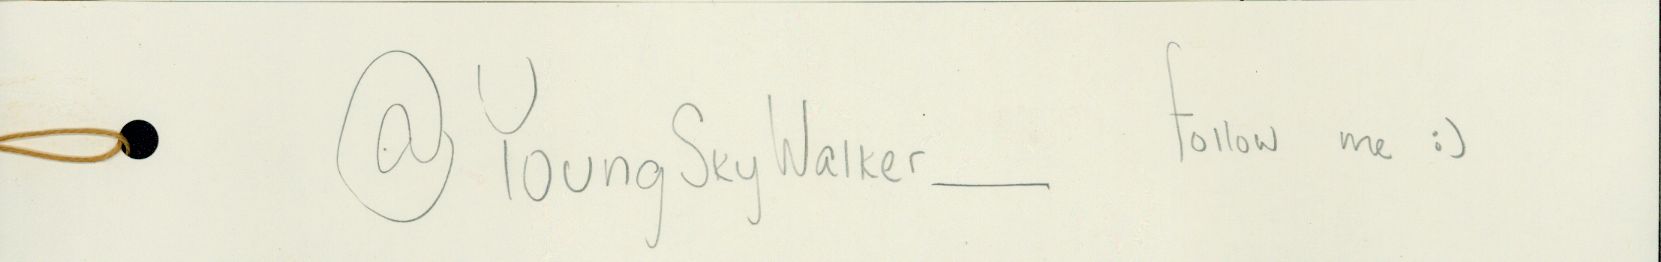 @YoungSkyWalker__ follow me :)